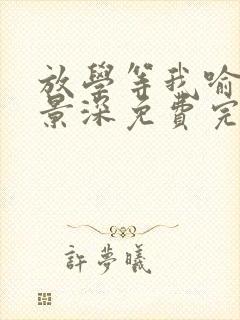 放學等我喻
景深免費完
許夢曦